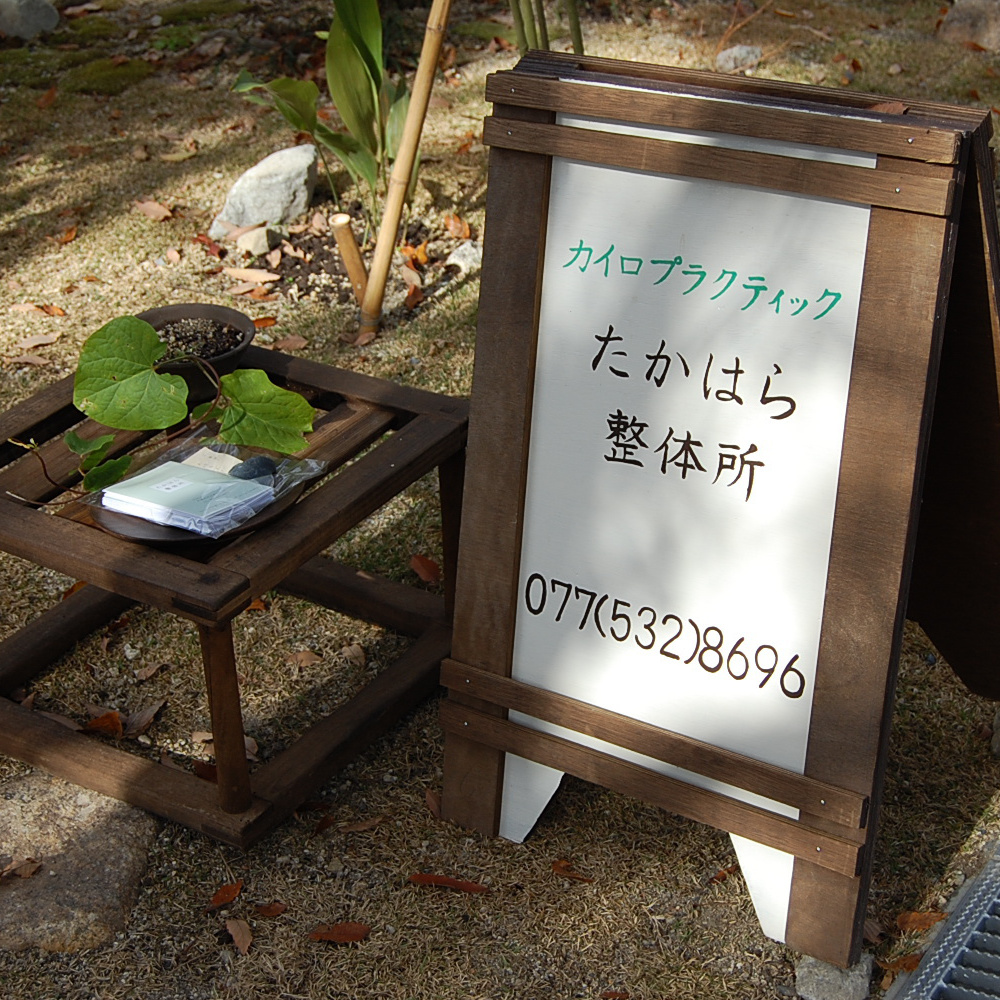 カイロプラクティック
たかはら
整体所
077(532)8696